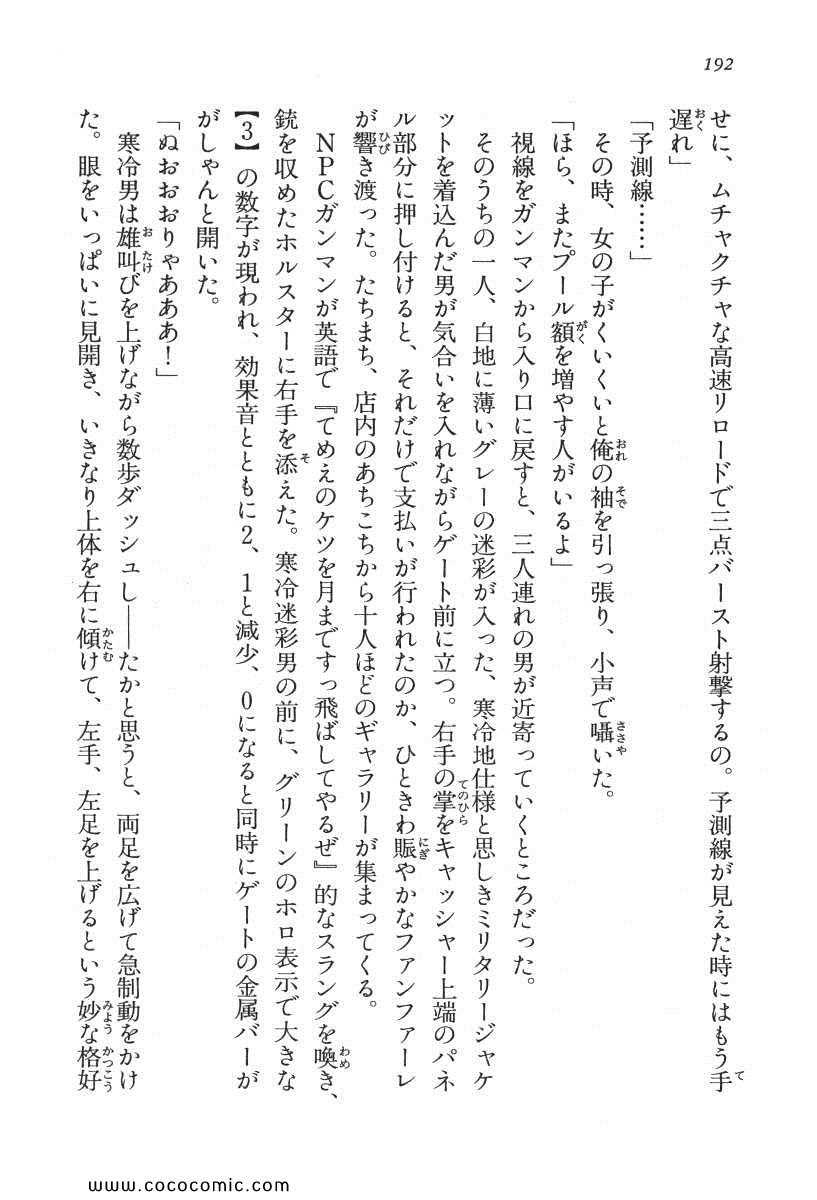 192
せに、ムチャクチャな高速リロードで三点バースト射撃するの。予測線が見えた時にはもう手
遅れ」
「予測線……」
その時、女の子がくいくいと俺の袖を引っ張り、小声で囁いた。
「ほら、またプール額を増やす人がいるよ」
視線をガンマンから入り口に戻すと、三人連れの男が近寄っていくところだった。
そのうちの一人、白地に薄いグレーの迷彩が入った、寒冷地仕様と思しきミリタリージャケ
ットを着込んだ男が気合いを入れながらゲート前に立つ。右手の掌をキャッシャー上端のパネ
ル部分に押し付けると、それだけで支払いが行われたのか、ひときわ賑やかなファンファーレ
が響き渡った。たちまち、店内のあちこちから十人ほどのギャラリーが集まってくる。
NPCガンマンが英語で『てめえのケツを月まですっ飛ばしてやるぜ』的なスラングを喚き、
銃を収めたホルスターに右手を添えた。寒冷迷彩男の前に、グリーンのホロ表示で大きな
【3】の数字が現われ、効果音とともに2、1と減少、0になると同時にゲートの金属バーが
がしゃんと開いた。
「ぬおおおりゃあああ!」
寒冷男は雄叫びを上げながら数歩ダッシュし——たかと思うと、両足を広げて急制動をかけ
た。眼をいっぱいに見開き、いきなり上体を右に傾けて、左手、左足を上げるという妙な格好
www.cococomic.com/